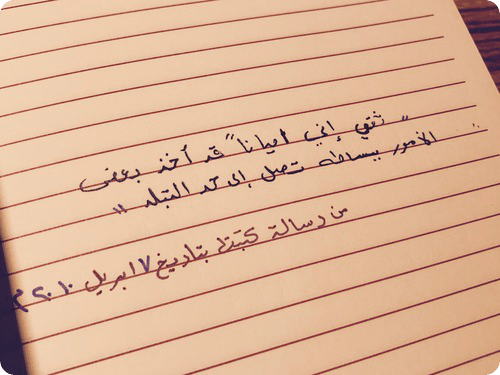 " ثقي إني احياناً قد أخذ بعض
الأمور ببساطه تصل إلى حد التبلد "
من رسالة كتبتها بتاريخ ١٧ ابريل ٢٠١٠ م